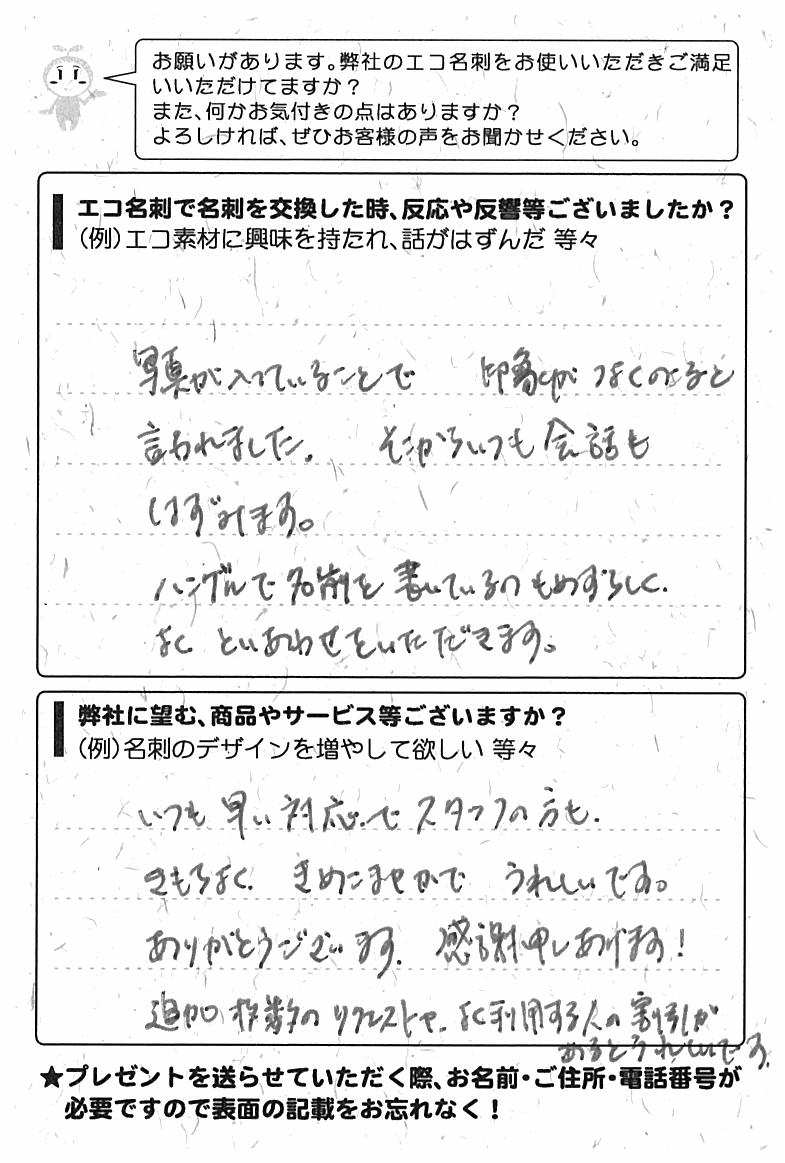 お願いがあります。弊社のエコ名刺をお使いいただきご満足
いいただけてますか？
また、何かお気付きの点はありますか？
よろしければ、ぜひお客様の声をお聞かせください。
エコ名刺で名刺を交換した時、反応や反響等ございましたか？
（例）エコ素材に興味を持たれ、話がはずんだ 等々
写真が入っていることで 印象が よくのこると
言われました。 そこからいつも会話も
はずみます。
ハングルで名前を書いているのもめずらしく、
よく といあわせをいただきます。
弊社に望む、商品やサービス等ございますか？
（例）名刺のデザインを増やして欲しい 等々
いつも 早い 対応で スタッフの方も、
きもちよく、 きめこまやかで うれしいです。
ありがとうございます、 感謝申しあげます！
追加 枚数の リクエストや、よく利用する人の 割引が
あるとうれしいです。
★プレゼントを送らせていただく際、お名前・ご住所・電話番号が
必要ですので表面の記載をお忘れなく！